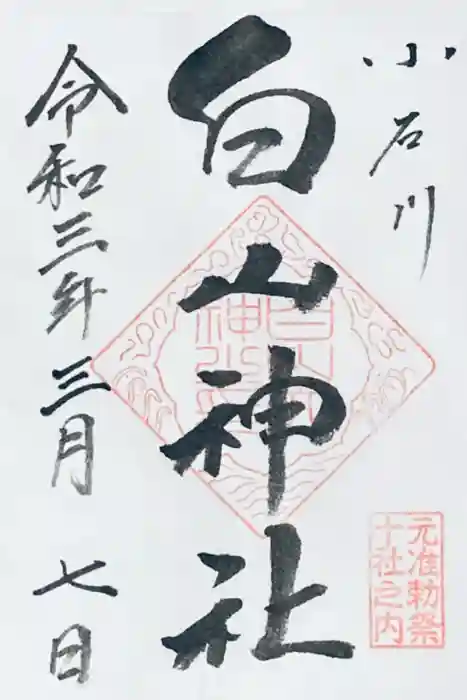 小石川
白山神社
令和三年三月七日
元准勅祭
十社之内
白山
神社